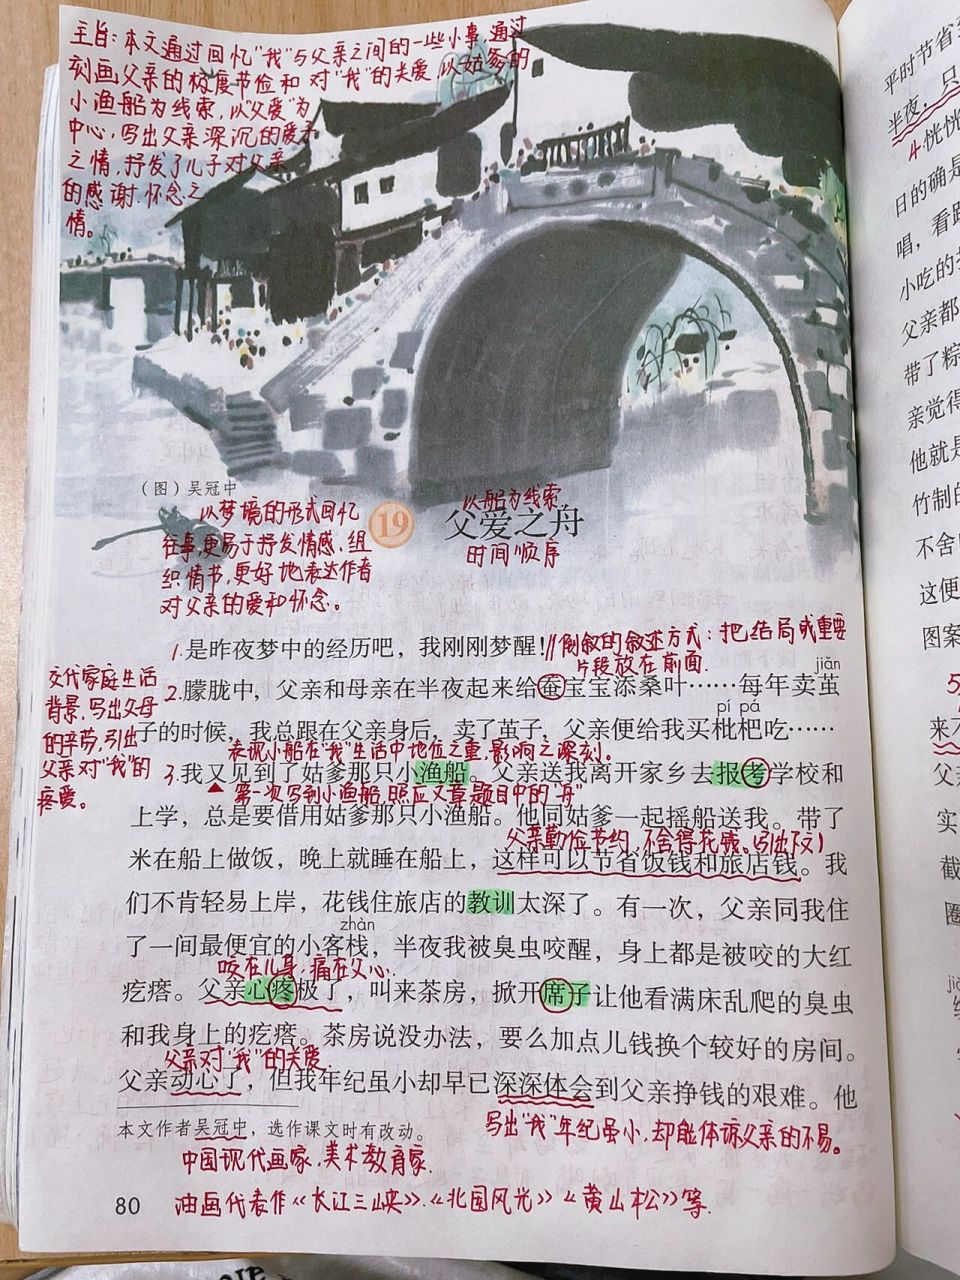 主旨:本文通过回忆“我”与父亲之间的一些小事,通过
刻画父亲的极度节俭和对“我”的关爅,以姑爹的
小渔船为线索,以“父爱”为
中心,写出父亲深沉的爱子
之情,抒发了儿子对父亲
的感谢.怀念之
情。
(图)吴冠中
以梦境的形式回忆
往事,更易于抒发情感.组
织情节,更好地表达作者
对父亲的爱和怀念。
19
以船为线索
父爱之舟
时间顺序
1.是昨夜梦中的经历吧,我刚刚梦醒!//倒叙的叙述方式:把结局或重要
片段放在前面.
jiǎn
交代家庭生活
背景,写出父母
的辛劳,引出
父亲对“我”的
疼爱。
2.朦胧中,父亲和母亲在半夜起来给蚕宝宝添桑叶……每年卖茧
pí pá
子的时候,我总跟在父亲身后,卖了茧子,父亲便给我买枇杷吃……
表现小船在“我”生活中地位之重,影响之深刻.
3.我又见到了姑爹那只小渔船。父亲送我离开家乡去报考学校和
▲第一次写到小渔船,照应文章题目中的“舟”
上学,总是要借用姑爹那只小渔船。他同姑爹一起摇船送我。带了
父亲勤俭节约,不舍得花钱。写出下文1
米在船上做饭,晚上就睡在船上,这样可以节省饭钱和旅店钱。我
们不肯轻易上岸,花钱住旅店的教训太深了。有一次,父亲同我住
zhàn
了一间最便宜的小客栈,半夜我被臭虫咬醒,身上都是被咬的大红
咬在儿身,痛在父心.
疙瘩。父亲心疼极了,叫来茶房,掀开席子让他看满床乱爬的臭虫
和我身上的疙瘩。茶房说没办法,要么加点儿钱换个较好的房间。
父亲对“我”的关爱.
父亲动心了,但我年纪虽小却早已深深体会到父亲挣钱的艰难。他
写出“我”年纪虽小,却能体谅父亲的不易。
本文作者吴冠中,选作课文时有改动。
中国现代画家,美术教育家.
油画代表作《长江三峡》.《北国风光》《黄山松》等.
80
平时节省
半夜,只
4.恍恍
日的确是
唱,看
小吃的
父亲都
带了粽
亲觉得
他就是
竹制的
不舍
这便
图案
5
来
父
实
截
圈